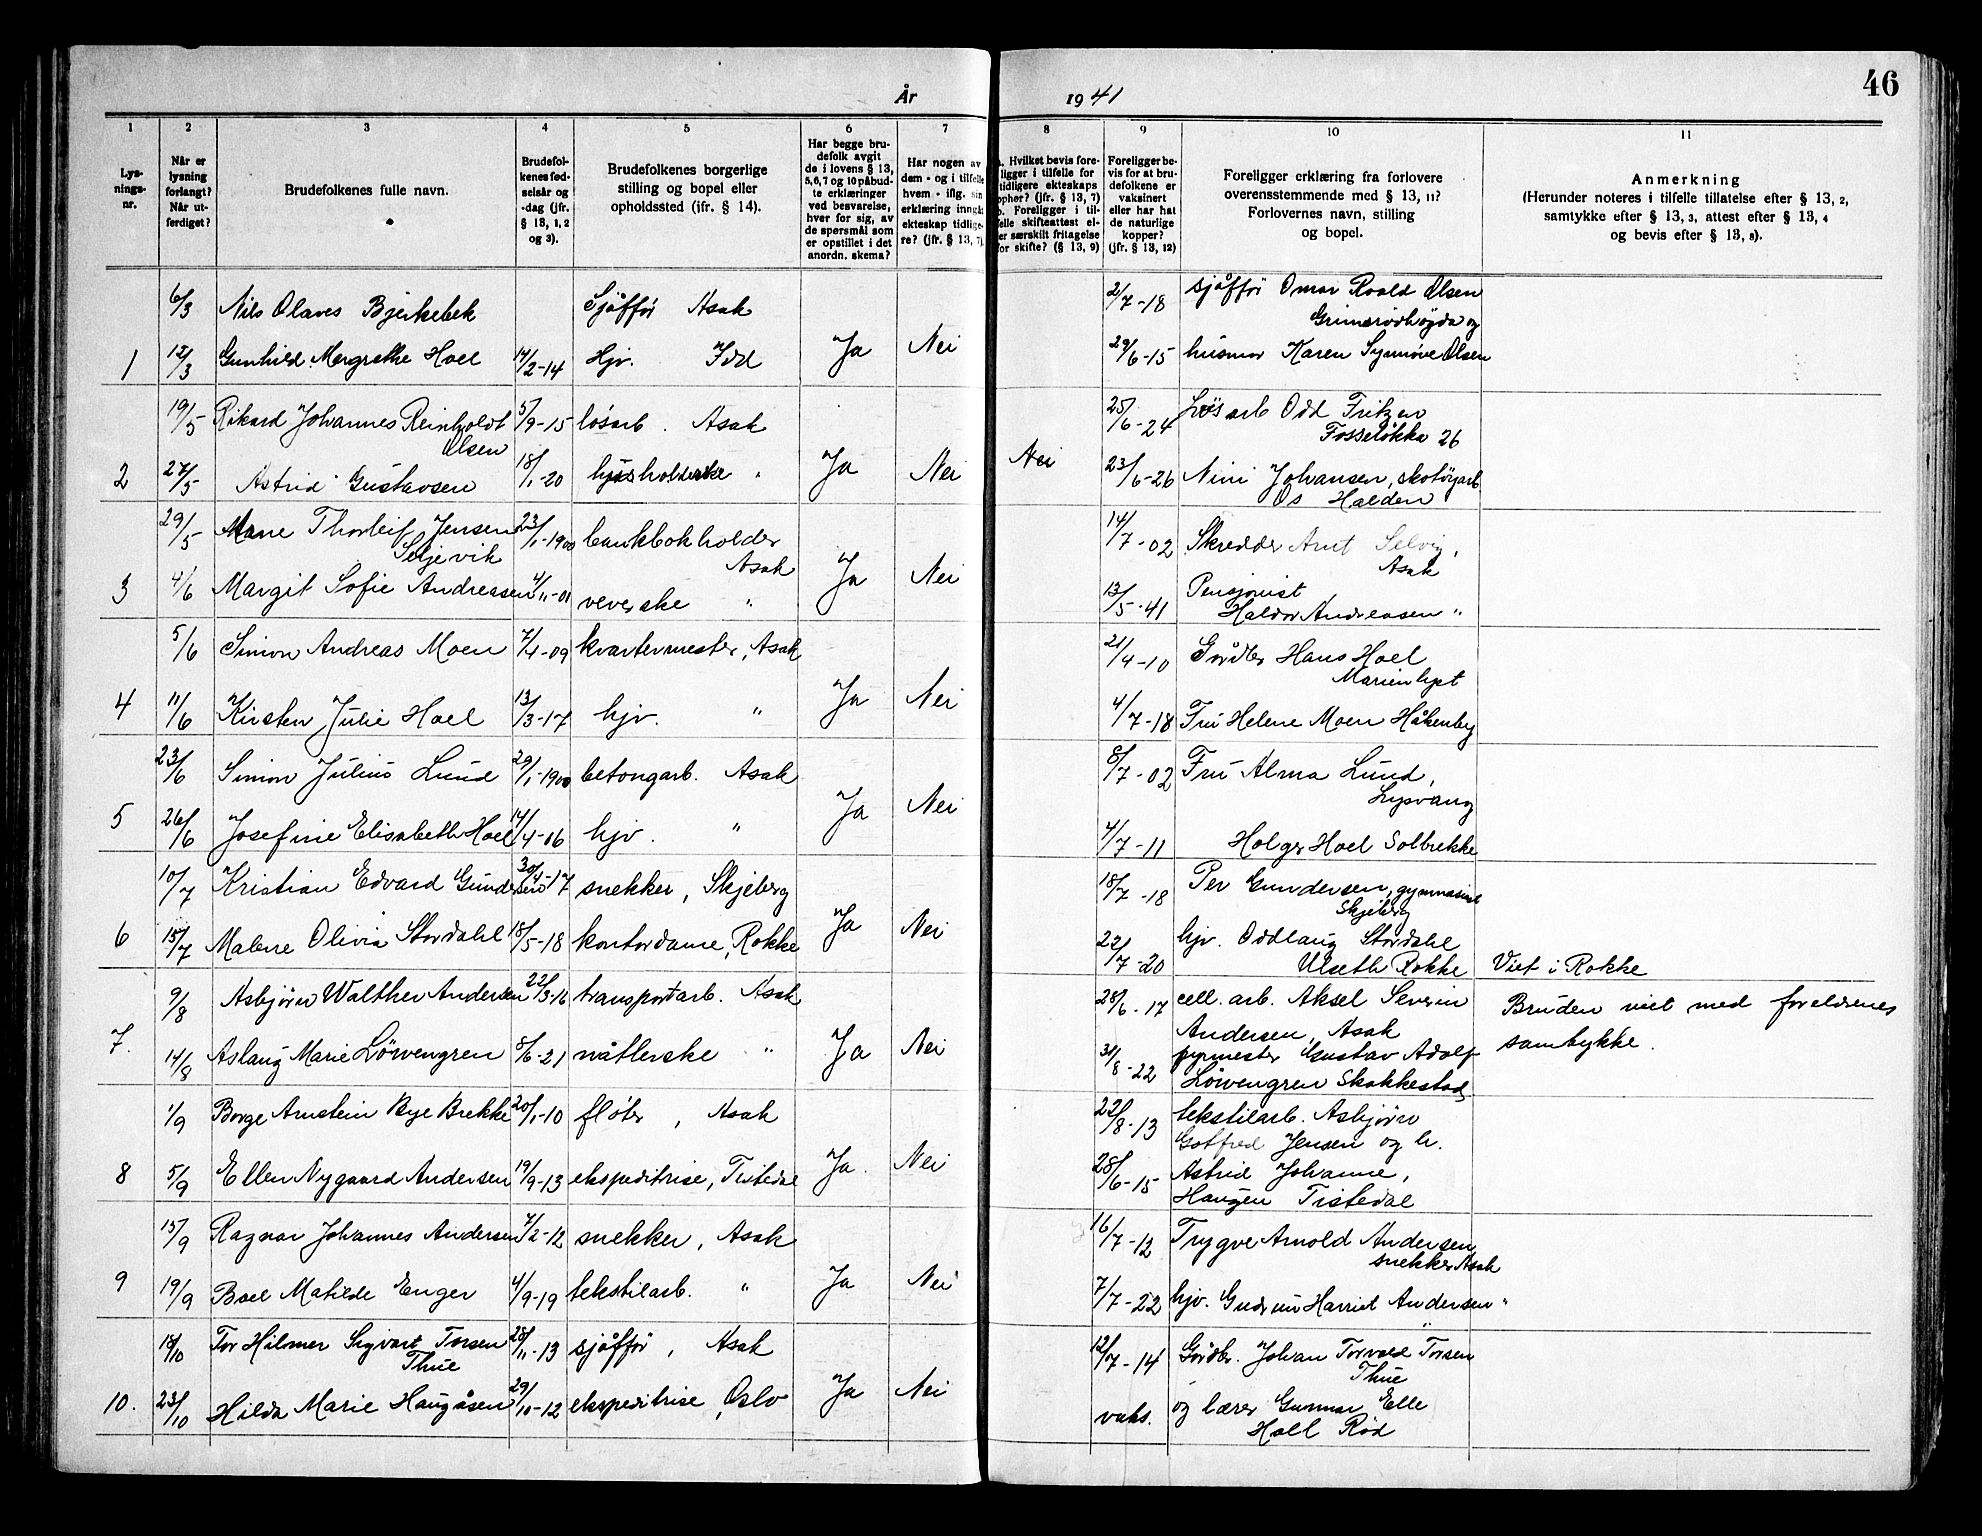 46
År 1941
1 2 3 4 5 6 7 8 9 10 11
Lys-
nings-
nr.
Når er
lysning
forlangt?
Når ut-
ferdiget?
Brudefolkenes fulle navn.
Brudefol-
kenes fød-
selsår og
-dag (jfr.
§ 13, 1, 2
og 3).
Brudefolkenes borgerlige
stilling og bopel eller
opholdssted (ifr. § 14).
Har begge bru-
defolk avgit
de i lovens § 13,
5,6,7 og 10 påbud-
te erklæringer
ved besvarelse,
hver for sig, av
de spørsmål som
er opstillet i det
anordn. skema?
Har nogen av
dem - og i tilfelle
hvem - iflg. sin
erklæring inngåt
ekteskap tidlige-
re? (jfr. § 13, 7).
a. Hvilket bevis fore-
ligger i tilfelle for
tidligere ekteskaps
ophør? (jfr. § 13, 7)
b. Foreligger i til-
felle skifteattest el-
er særskilt fritagelse
for skifte? (§ 13, 9)
Foreligger be-
vis for at bru-
defolkene er
vaksinert
eller har hat
de naturlige
kopper?
(jfr. § 13, 12)
Foreligger erklæring fra forlovere
overensstemmende med § 13, 11?
Forlovernes navn, stilling
og bopel.
Anmerkning
(Herunder noteres i tilfelle tillatelse efter § 13, 2,
samtykke efter § 13, 3, attest efter § 13, 4
og bevis efter § 13, 8).
6/3 Nils Olaves Bjerkebek Sjåffør Asak 2/7-18 sjåffør Omar Roald Olsen
Grimsrødhøgda og
1 12/3 Gunhild Margrethe Hoel 14/2-14 Hjv. Idd Ja Nei 29/6-15 husmor Karen Synnøve Olsen
19/5 Rikard Johannes Reinholdt 5/9-15 løsarb. Asak 25/6-24 Løsarb Odd Fritzen
Olsen Fosseløkka 26
2 27/5 Astrid Gustavsen 18/1-20 husholderske " Ja Nei Nei 23/6-26 Nini Johansen, skotøyarb.
Os Halden
29/5 Arne Thorleif Jensen 23/1-1900 bankbokholder 14/7-02 Skredder Arnt Selvig,
Skjevik Asak Asak
3 4/6 Margit Sofie Andreassen 4/11-01 veverske " Ja Nei 13/5-41 Pensjonist
Haldor Andreasen "
5/6 Simon Andreas Moen 7/4-09 kvartermester, Asak 21/4-10 Gårdbr Hans Hoel
Marienlyst
4 11/6 Kirsten Julie Hoel 13/3-17 hjv. " Ja Nei 4/7-18 Fru Helene Moen Håkenby
23/6 Simon Julius Lund 29/1-1900 betongarb. Asak 8/7-02 Fru Alma Lund,
Lysvang
5 26/6 Josefine Elisabeth Hoel 14/4-06 hjv. " Ja Nei 4/7-11 Holger Hoel Solbrekke
10/7 Kristian Edvard Gundersen 30/4-17 snekker, Skjeberg 18/7-18 Per Gundersen, gymnasiast
Skjeberg
6 15/7 Malene Olivia Stordahl 18/5-18 kontordame, Rokke Ja Nei 22/7-20 hjv. Oddlaug Stordahl
Ulseth Rokke Viet i Rokke
9/8 Asbjørn Walther Andersen 22/3-16 transportarb. Asak 28/6-17 cell. arb. Aksel Severin Bruden viet med foreldrenes
Andersen, Asak samtykke.
7. 14/8 Aslaug Marie Löwengren 8/6-21 nåtlerske " Ja Nei 31/8-22 fyrmester Gustav Adolf
Löwengren Skakkestad
1/9 Borge Arnstein Bye Brekke 20/1-10 fløter, Asak 22/8-13 tekstilarb. Asbjørn
Gotfred Jensen og h.
8 5/9 Ellen Nygaard Andersen 19/9-13 ekspeditrise, Tistedal Ja. Nei 28/6-15 Astrid Johanne,
Haugen Tistedal
15/9 Ragnar Johannes Andersen 7/2-12 snekker, Asak 16/7-12 Trygve Arnold Andersen
snekker Asak
9 19/9 Boel Matilde Enger 4/9-19 tekstilarb. " Ja Nei 7/7-22 hjv. Gudrun Harriet Andersen "
18/10 Tor Hilmer Sigvart Torsen 28/11-13 sjåffør, Asak 12/7-14 Gårdbr. Johan Torvald Torsen
Thue Thue
10. 23/10 Hilda Marie Haugåsen 29/10-12 ekspeditrise, Oslo Ja Nei vaks. og lærer Gunnar Elle
Holl Rød